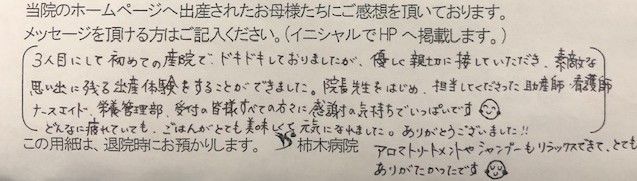 当院のホームページへ出産されたお母様たちにご感想を頂いております。
メッセージを頂ける方はご記入ください。(イニシャルでHPへ掲載します。)
3人目にして初めての産院で、ドキドキしておりましたが、優しく親切に接していただき、素敵な
思い出に残る出産体験をすることができました。院長先生をはじめ、担当してくださった助産師・看護師
ナースエイド、栄養管理部、受付の皆様すべての方々に感謝の気持ちでいっぱいです
どんなに疲れていても、ごはんがとても美味しくて元気になれました。ありがとうございました!!
この用紙は、退院時にお預かりします。 柿木病院
アロマトリートメントやシャンプーもリラックスできて、とても
ありがたかったです